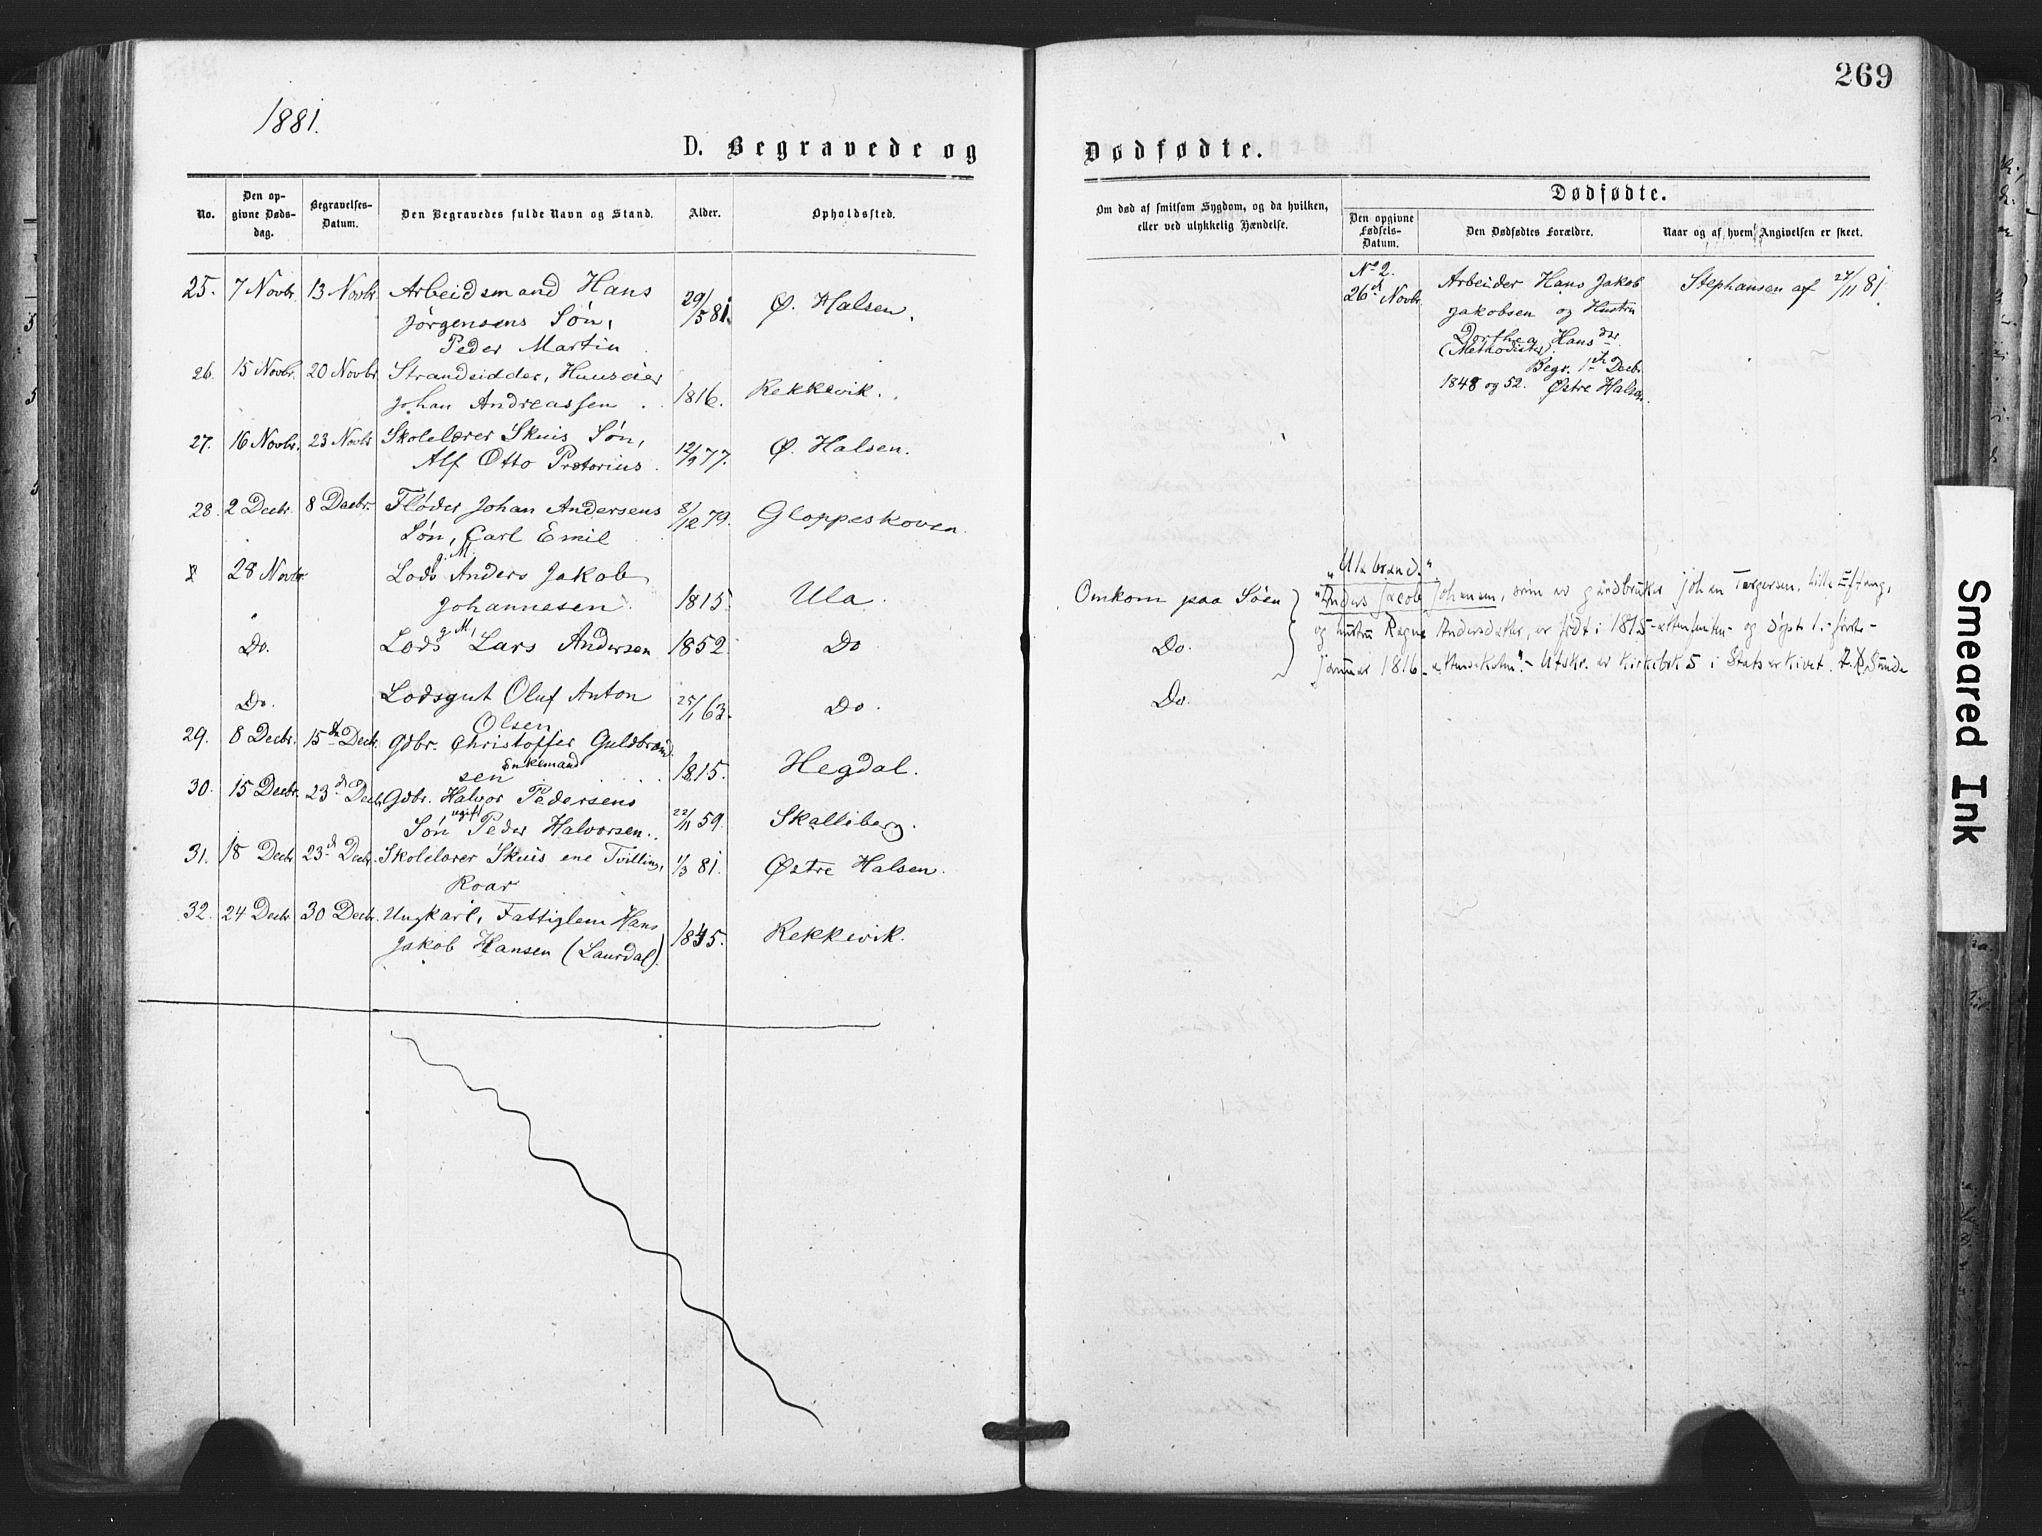 269
1881.
D. Begravede og Dødfødte.
No.
Den opgivne Døds-
dag.
Begravelses-
Datum.
Den Begravedes fulde Navn og Stand.
Alder.
Opholdssted.
Om død af smitsom Sygdom, og da hvilken,
eller ved ulykkelig Hændelse.
Dødfødte.
Den opgivne
Fødsels-
Datum.
Den Dødfødtes Forældre.
Naar og af hvem Angivelsen er skeet.
25. 7 Novbr. 13 Novbr. Arbeidsmand Hans
Jörgensens Sön,
Peder Martin
29/5 81. Ø. Halsen.
26. 15 Novbr. 20 Novbr. Strandsidder, Huuseier
Johan Andreassen. 1816. Rekkevik.
27. 16 Novbr. 23 Novbr. Skolelærer Skuis Sön,
Alf Otto Prætorius. 12/9 77. Ø. Halsen.
28. 2 Decbr. 8 Decbr. Fløder Johan Andersens
Sön, Carl Emil 8/12 79. Gloppeskoven
28 Novbr. Lods g. M. Anders Jakob
Johannesen. 1815. Ula. Omkom paa Søen
Do. Lods g. M. Lars Andersen 1852 Do Do.
Do. Lodsgut Oluf Anton
Olsen 25/11 63. Do. Do.
29. 8 Decbr. 15de Decbr. Gdbr. Christoffer Guldbrand-
sen Enkemand 1815. Hegdal.
30. 15 Decbr. 23de Decbr. Gdbr. Halvor Pedersens
Sön ugift Peder Halvorsen. 22/11 59. Skalliberg.
31. 18 Decbr. 23de Decbr. Skolelærer Skuis ene Tvilling,
Roar 1/3 81. Østre Halsen.
32. 24 Decbr. 30 Decbr. Ungkarl, Fattiglem Hans
Jakob Hansen (Laurdal). 1845. Rekkevik.
No 2.
26de Novbr.
Arbeider Hans Jakob
Jakobsen og Hustru
Dorthea Hansdr
(Methodister).
Begr. 1ste Decbr.
1848 og 52. Østre Halsen.
Stephansen af 27/11 81.
"Ulabrand."
"Anders Jacob Johansen, sönn av gårdbruker Johan Torgersen, Lille Eftang,
og hustru Ragne Andersdatter, er født i 1815 og döpt 1. første-
januar 1816 Utskr. av kirkebok 5 i Statsarkivet. Sunde
Smeared Ink